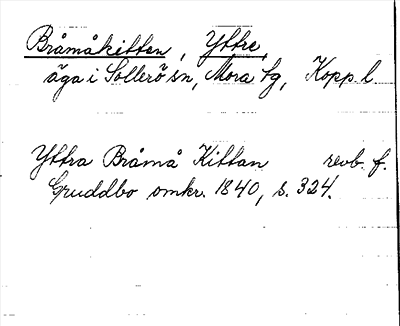 Bråmåkittan, Yttre,
äga i Sollerö sn, Mora tg, Kopp. l.
Yttra Bråmå Kittan revb. f.
Gruddbo omkr. 1840, s. 324.